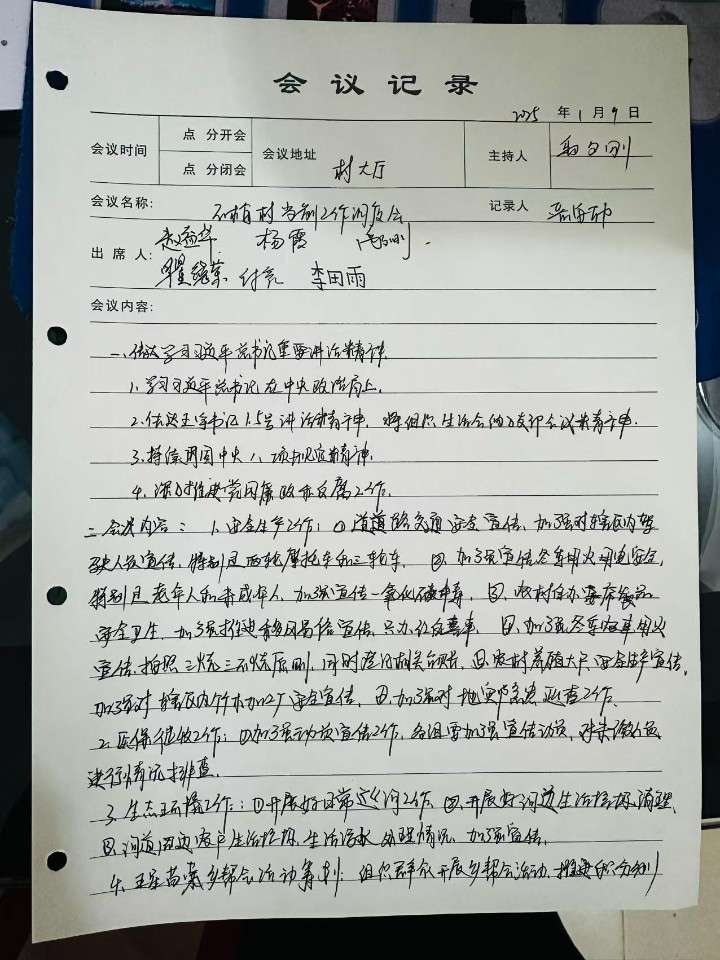 会议记录
2025 年 1 月 9 日
会议时间 点 分开会 会议地址 村大厅 主持人
点 分闭会
会议名称: 村当前工作调度会 记录人
出席人: 杨霞
付亮 李田雨
会议内容:
一、传达学习习近平总书记重要讲话精神.
1. 学习习近平总书记在中央政治局上.
2. 传达王字书记1.5号讲话精神. 将组织生活会的 会议精神.
3. 持续 中央八项规定精神.
4. 深入推进党风廉政和反腐工作.
二、会议内容: 1. 安全生产工作: ①道路交通安全宣传, 加强对辖区内驾
驶人员宣传, 特别是两轮摩托车和三轮车. ②. 加强宣传冬季用火用电安全,
特别是老年人和未成年人, 加强宣传一氧化碳中毒. ③. 农村自办宴席食品
安全卫生, 加强推进移风易俗宣传, 只办红白喜事. ④. 加强冬季 用火
宣传, 按照三烧三不烧原则, 同时 相关台账. ⑤. 农村养殖大户安全生产宣传,
加强对辖区内竹木加工厂安全宣传, ⑥. 加强对地 巡查工作.
2. 医保征收工作: ①加强动员宣传工作, 各组要加强宣传动员, 对未缴人员
进行情况排查.
3. 生态环境工作: ①开展好日常巡河工作. ②. 开展好河边生活垃圾清理.
③. 河道周边农户生活垃圾, 生活污水处理情况, 加强宣传.
4. 五星苗寨乡帮会活动筹划: 组织群众开展乡帮会活动, 推进积分制